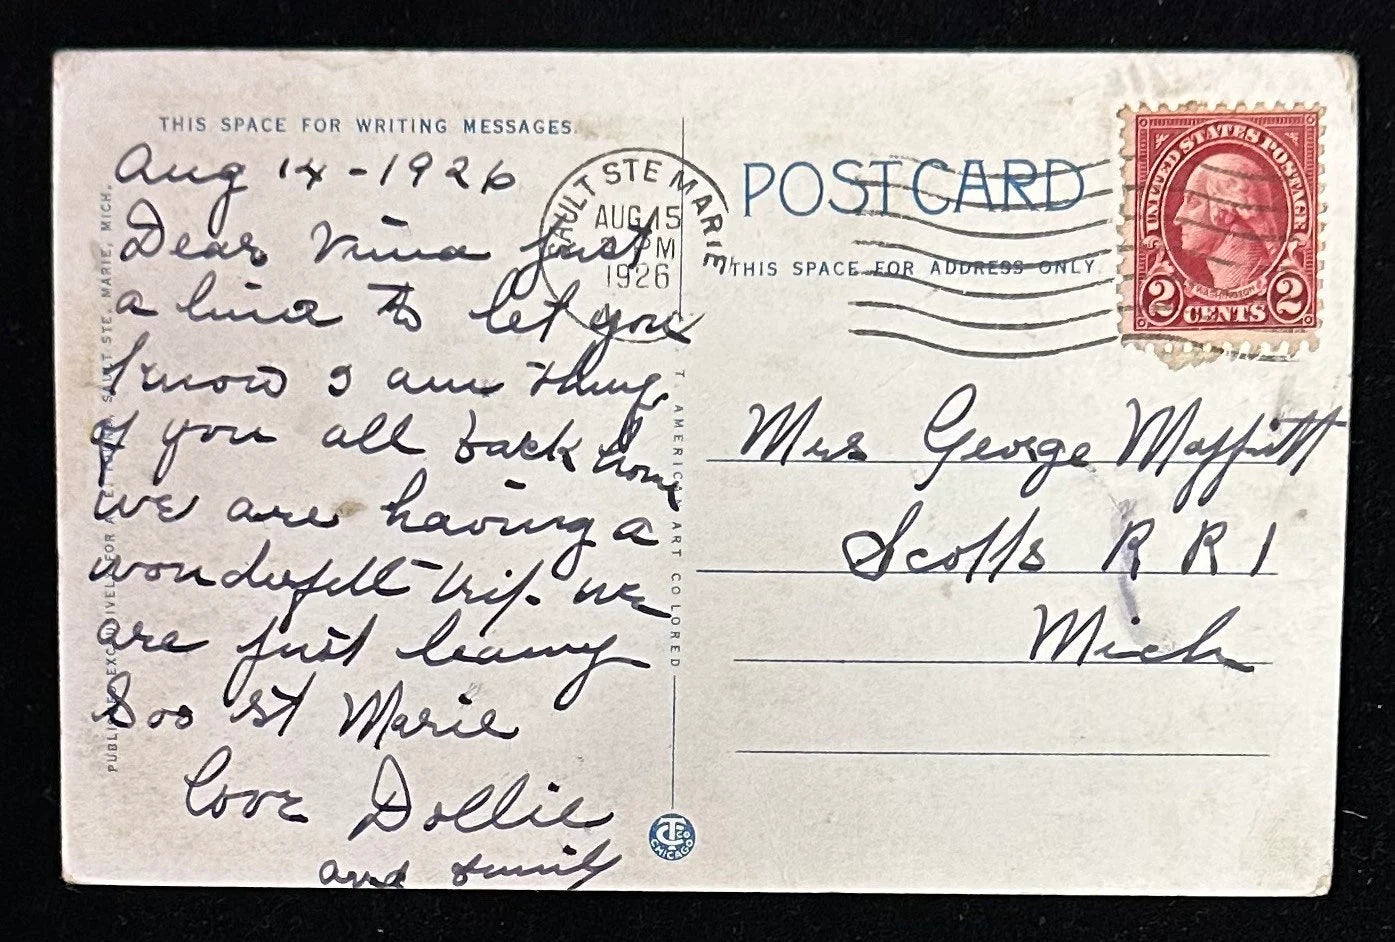 THIS SPACE FOR WRITING MESSAGES.
Aug 14-1926
Dear Vina just
a line to let you
know I am thing
of you all back home
we are having a
wonderfull trip. we
are just leaving
Soo St Marie
Love Dollie
and family
PUBLISHED EXCLUSIVELY FOR A. E. SAULT STE. MARIE, MICH.
SAULT STE MARIE
AUG 15
PM
1926
C. T. AMERICAN ART COLORED
CT CO
CHICAGO
POSTCARD
THIS SPACE FOR ADDRESS ONLY.
UNITED STATES POSTAGE
WASHINGTON
2 CENTS 2
Mrs George Moffitt
Scotts R R 1
Mich